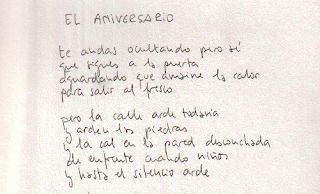 EL ANIVERSARIO
te andas ocultando pero sé
que sigues a la puerta
aguardando que amaine la calor
para salir al fresco
pero la calle arde todavía
y arden las piedras
y la cal en la pared desconchada
de enfrente cuando niños
y hasta el silencio arde